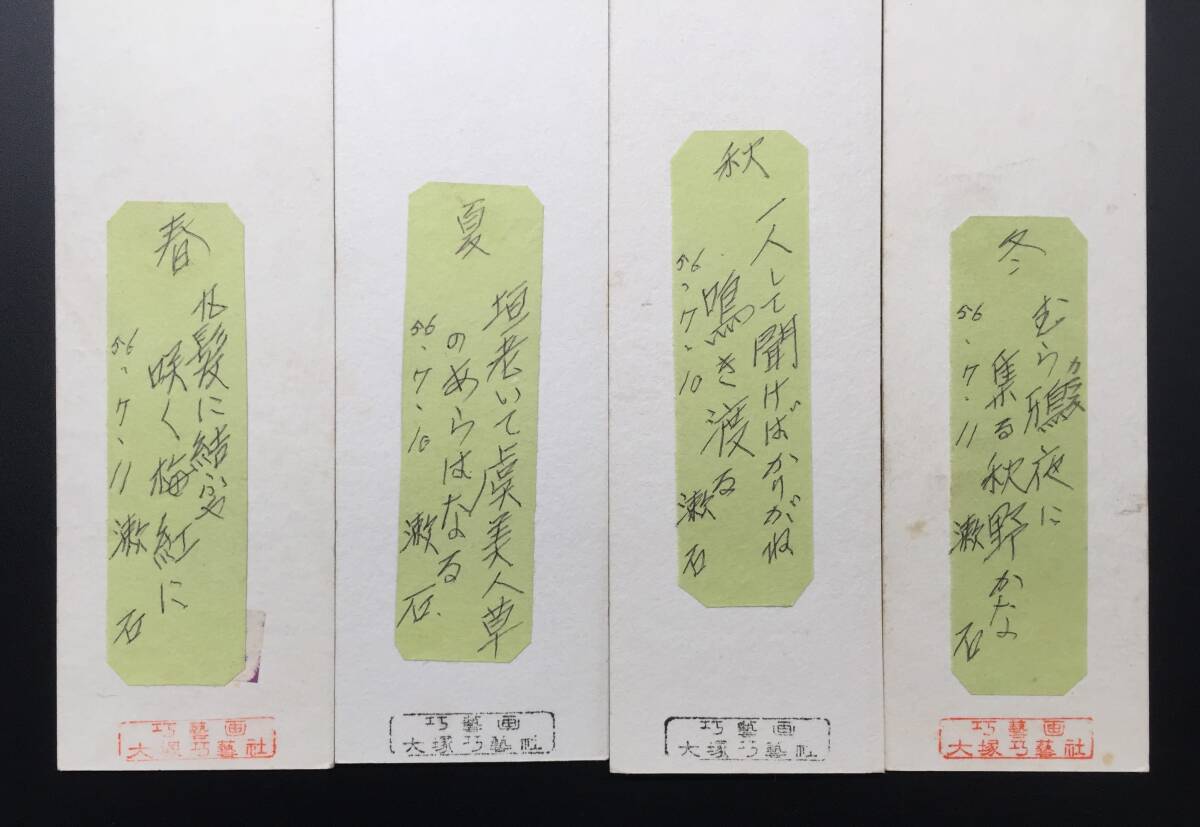 春
髪に結ふや
咲く梅紅に
漱石
56、7、11
夏
垣老いて虞美人草
のあらはなる
漱石
56、7、10
秋
一人して聞けばかりがね
鳴き渡る
漱石
56、7、10
冬
むら夜に
集る秋野かな
漱石
56、7、11
巧藝画
大塚巧藝社
巧藝画
大塚巧藝社
巧藝画
大塚巧藝社
巧藝画
大塚巧藝社